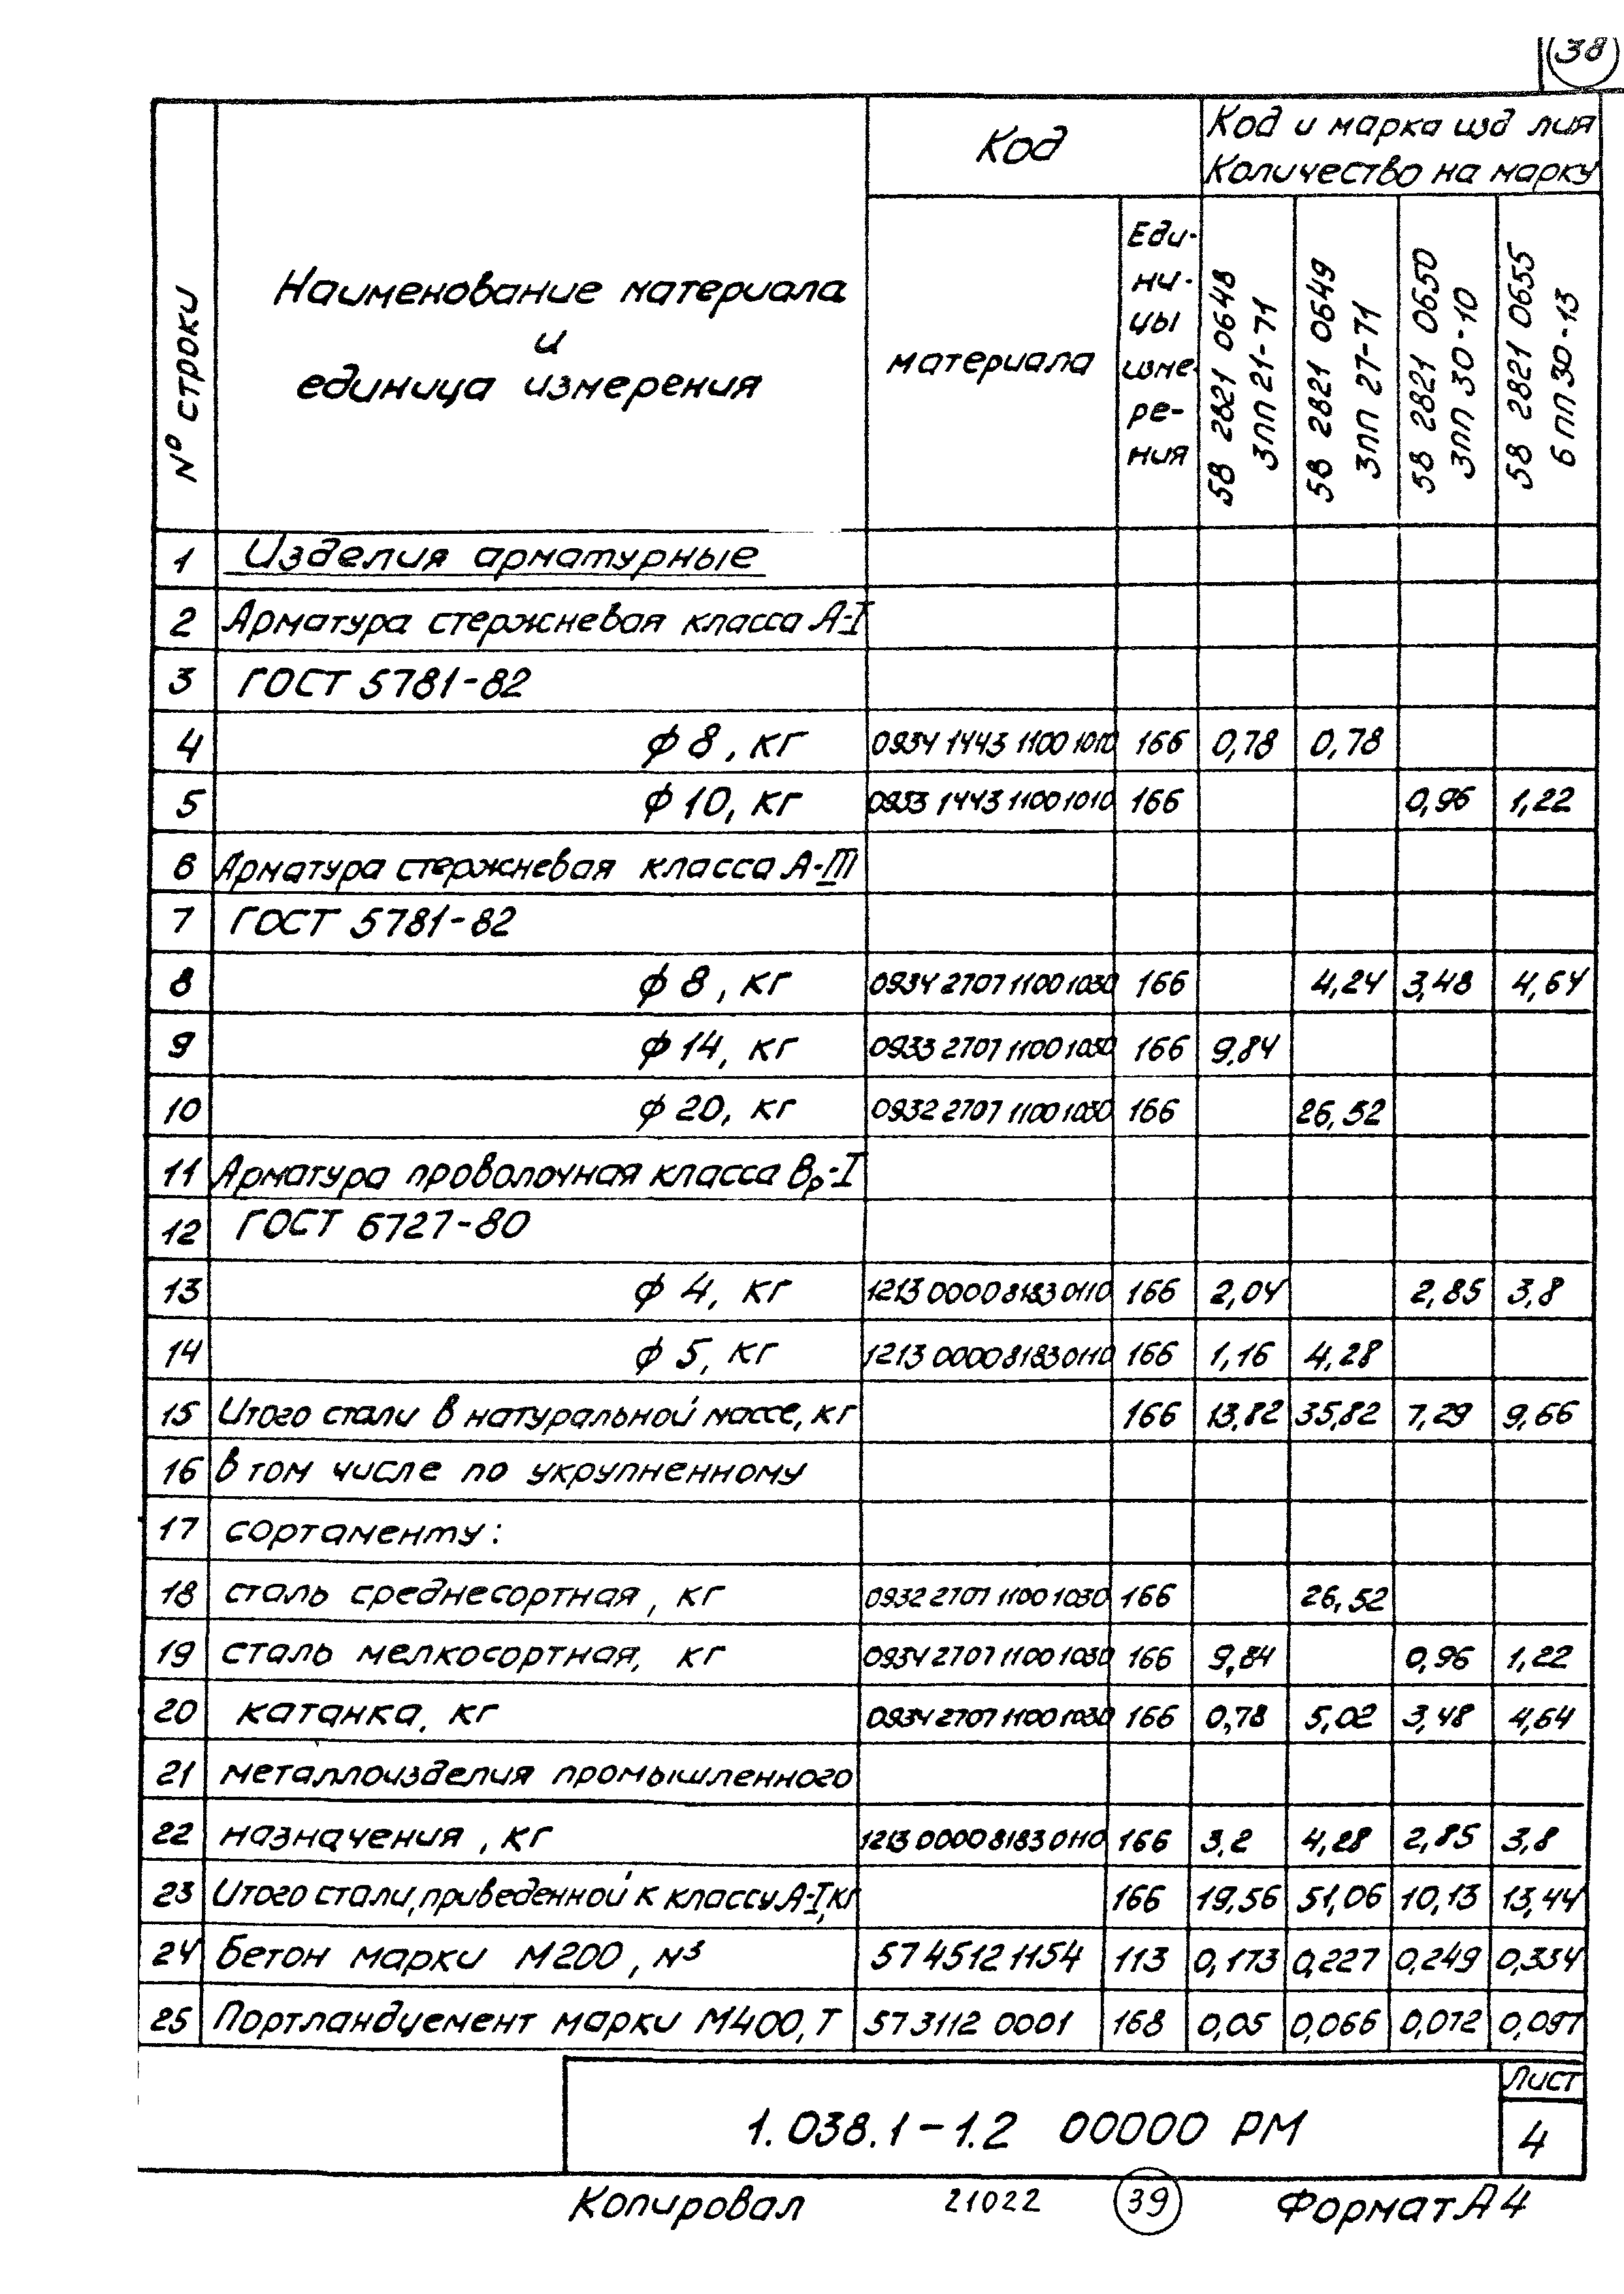 38
№ строки
Наименование материала
и
единица измерения
Код
Код и марка изд лия
Количество на марку
материала
Еди-
ни-
цы
изме-
ре-
ния
58 2821 0648
3ПП 21-71
58 2821 0649
3ПП 27-71
58 2821 0650
3ПП 30-10
58 2821 0655
6 ПП 30-13
1 Изделия арматурные
2 Арматура стержневая класса А-I
3 ГОСТ 5781-82
4 ф 8, кг 0934 1443 1100 1010 166 0,78 0,78
5 ф 10, кг 0933 1443 1100 1010 166 0,96 1,22
6 Арматура стержневая класса А-III
7 ГОСТ 5781-82
8 ф 8, кг 0934 2707 1100 1030 166 4,24 3,48 4,64
9 ф 14, кг 0933 2707 1100 1030 166 9,84
10 ф 20, кг 0932 2707 1100 1030 166 26,52
11 Арматура проволочная класса Вр-I
12 ГОСТ 6727-80
13 ф 4, кг 1213 0000 8183 0110 166 2,04 2,85 3,8
14 ф 5, кг 1213 0000 8183 0110 166 1,16 4,28
15 Итого стали в натуральной массе, кг 166 13,82 35,82 7,29 9,66
16 В том числе по укрупненному
17 сортаменту:
18 сталь среднесортная, кг 0932 2707 1100 1030 166 26,52
19 сталь мелкосортная, кг 0934 2707 1100 1030 166 9,84 0,96 1,22
20 катанка, кг 0934 2707 1100 1030 166 0,78 5,02 3,48 4,64
21 металлоизделия промышленного
22 назначения, кг 1213 0000 8183 0110 166 3,2 4,28 2,85 3,8
23 Итого стали, приведенной к классу А-I, кг 166 19,56 51,06 10,13 13,44
24 Бетон марки М200, м³ 57 4512 1154 113 0,173 0,227 0,249 0,334
25 Портландцемент марки М400, Т 57 3112 0001 168 0,05 0,066 0,072 0,097
1.038.1-1.2 00000 РМ
Лист
4
Копировал 21022 39 Формат А4